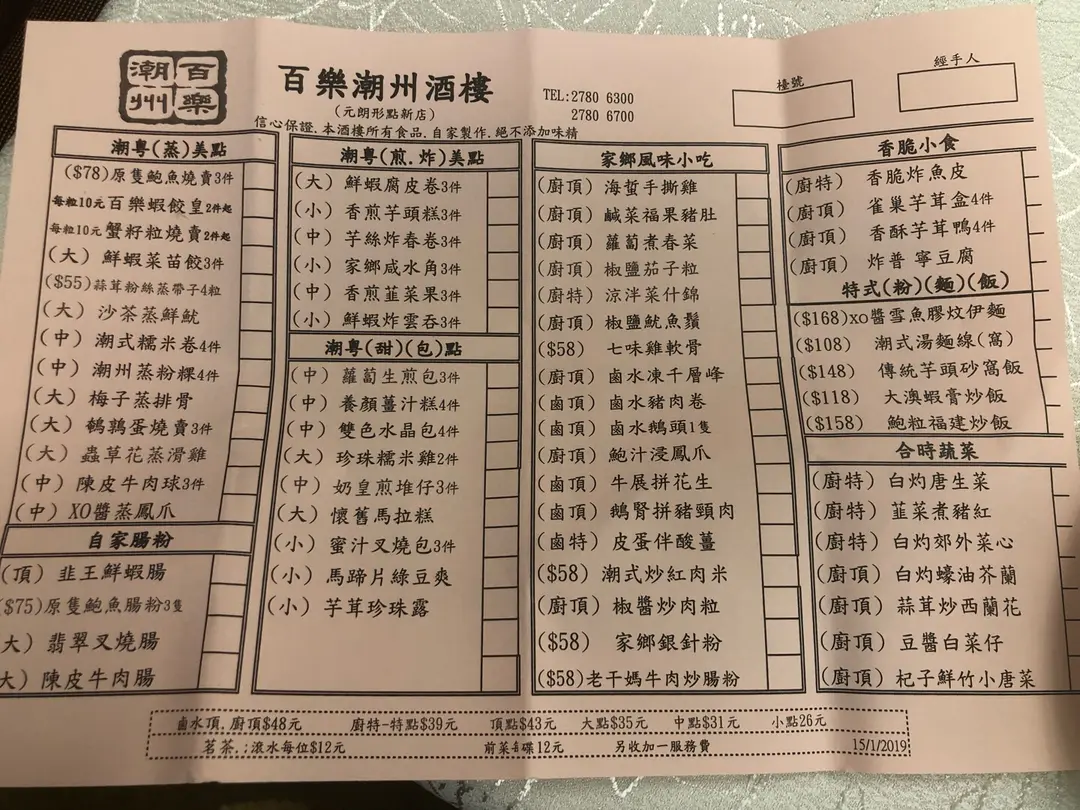 百樂潮州
百樂潮州酒樓
(元朗形點新店)
TEL:2780 6300
2780 6700
檯號
經手人
信心保證.本酒樓所有食品.自家製作.絕不添加味精
潮粵(蒸)美點
($78)原隻鮑魚燒賣3件
每粒10元百樂蝦餃皇2件起
每粒10元蟹籽粒燒賣2件起
(大) 鮮蝦菜苗餃3件
($55)蒜茸粉絲蒸帶子4粒
(大) 沙茶蒸鮮魷
(中) 潮式糯米卷4件
(中) 潮州蒸粉粿4件
(大) 梅子蒸排骨
(大) 鵪鶉蛋燒賣3件
(大) 蟲草花蒸滑雞
(中) 陳皮牛肉球3件
(中) XO醬蒸鳳爪
自家腸粉
(頂) 韭王鮮蝦腸
($75)原隻鮑魚腸粉3隻
大) 翡翠叉燒腸
大) 陳皮牛肉腸
潮粵(煎.炸)美點
(大) 鮮蝦腐皮卷3件
(小) 香煎芋頭糕3件
(中) 芋絲炸春卷3件
(小) 家鄉咸水角3件
(中) 香煎韮菜果3件
(小) 鮮蝦炸雲吞3件
潮粵(甜)(包)點
(中) 蘿蔔生煎包3件
(中) 養顏薑汁糕4件
(中) 雙色水晶包4件
(大) 珍珠糯米雞2件
(中) 奶皇煎堆仔3件
(大) 懷舊馬拉糕
(小) 蜜汁叉燒包3件
(小) 馬蹄片綠豆爽
(小) 芋茸珍珠露
家鄉風味小吃
(廚頂) 海蜇手撕雞
(廚頂) 鹹菜福果豬肚
(廚頂) 蘿蔔煮春菜
(廚頂) 椒鹽茄子粒
(廚特) 涼泮菜什錦
(廚頂) 椒鹽魷魚鬚
($58) 七味雞軟骨
(廚頂) 鹵水凍千層峰
(鹵頂) 鹵水豬肉卷
(鹵頂) 鹵水鵝頭1隻
(廚頂) 鮑汁浸鳳爪
(鹵頂) 牛展拼花生
(鹵頂) 鵝腎拼豬頸肉
(鹵特) 皮蛋伴酸薑
($58) 潮式炒紅肉米
(廚頂) 椒醬炒肉粒
($58) 家鄉銀針粉
($58)老干媽牛肉炒腸粉
香脆小食
(廚特) 香脆炸魚皮
(廚頂) 雀巢芋茸盒4件
(廚頂) 香酥芋茸鴨4件
(廚頂) 炸普寧豆腐
特式(粉)(麵)(飯)
($168)xo醬雪魚膠炆伊麵
($108) 潮式湯麵線(窩)
($148) 傳統芋頭砂窩飯
($118) 大澳蝦膏炒飯
($158) 鮑粒福建炒飯
合時蔬菜
(廚特) 白灼唐生菜
(廚頂) 韮菜煮豬紅
(廚特) 白灼郊外菜心
(廚頂) 白灼蠔油芥蘭
(廚頂) 蒜茸炒西蘭花
(廚頂) 豆醬白菜仔
(廚頂) 杞子鮮竹小唐菜
鹵水頂.廚頂$48元 廚特-特點$39元 頂點$43元 大點$35元 中點$31元 小點26元
茗茶.:滾水每位$12元 前菜每碟12元 另收加一服務費 15/1/2019